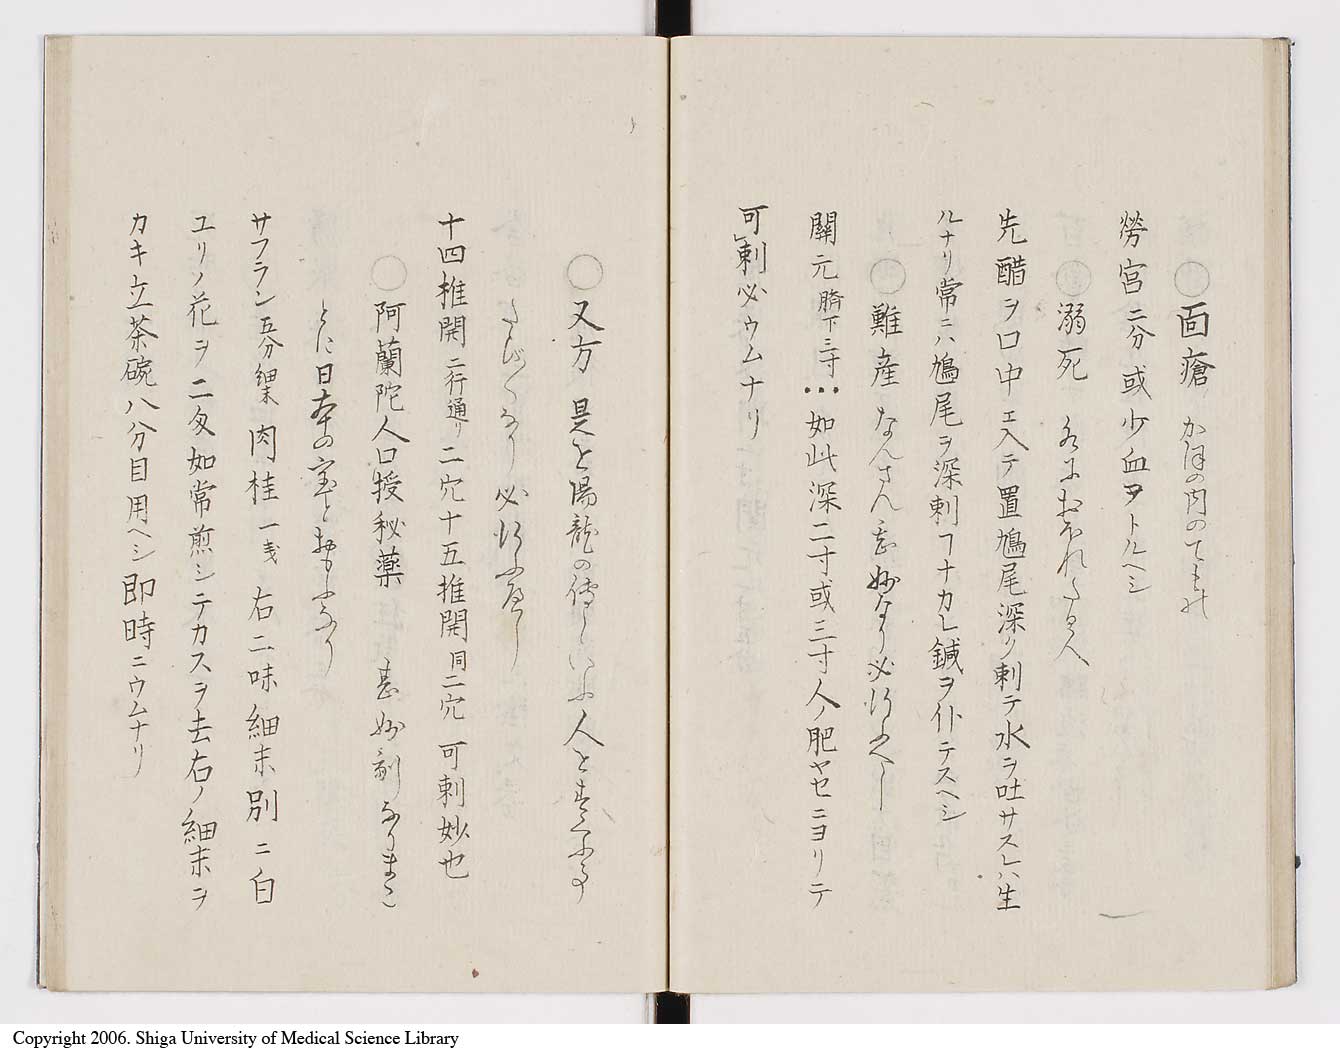 ○面瘡 かほの内のてもの
勞宮二分或少血ヲトルヘシ
○溺死 水におぼれたる人
先醋ヲ口中エ入テ置鳩尾深ク刺テ水ヲ吐サスレハ生
ルナリ常ニハ鳩尾ヲ深刺ヿナカレ鍼ヲ仆テスヘシ
○難産 なんさん 妙なり必行ふへし
關元臍下三寸•••如此深二寸或三寸人ノ肥ヤセニヨリテ
可刺必ウムナリ
○又方 是を陽龍の傳といふ人をすくふ事
たび〱なり必行ふべし
十四推開二行通リ二穴十五推開同二穴可刺妙也
○阿蘭陀人口授秘薬 甚妙剤なりまこ
とに日本の宝とおもふなり
サフラン五分細末肉桂一戔右二味細末別ニ白
ユリノ花ヲ二匁如常煎シテカスヲ去右ノ細末ヲ
カキ立茶碗八分目用ヘシ即時ニウムナリ
Copyright 2006. Shiga University of Medical Science Library